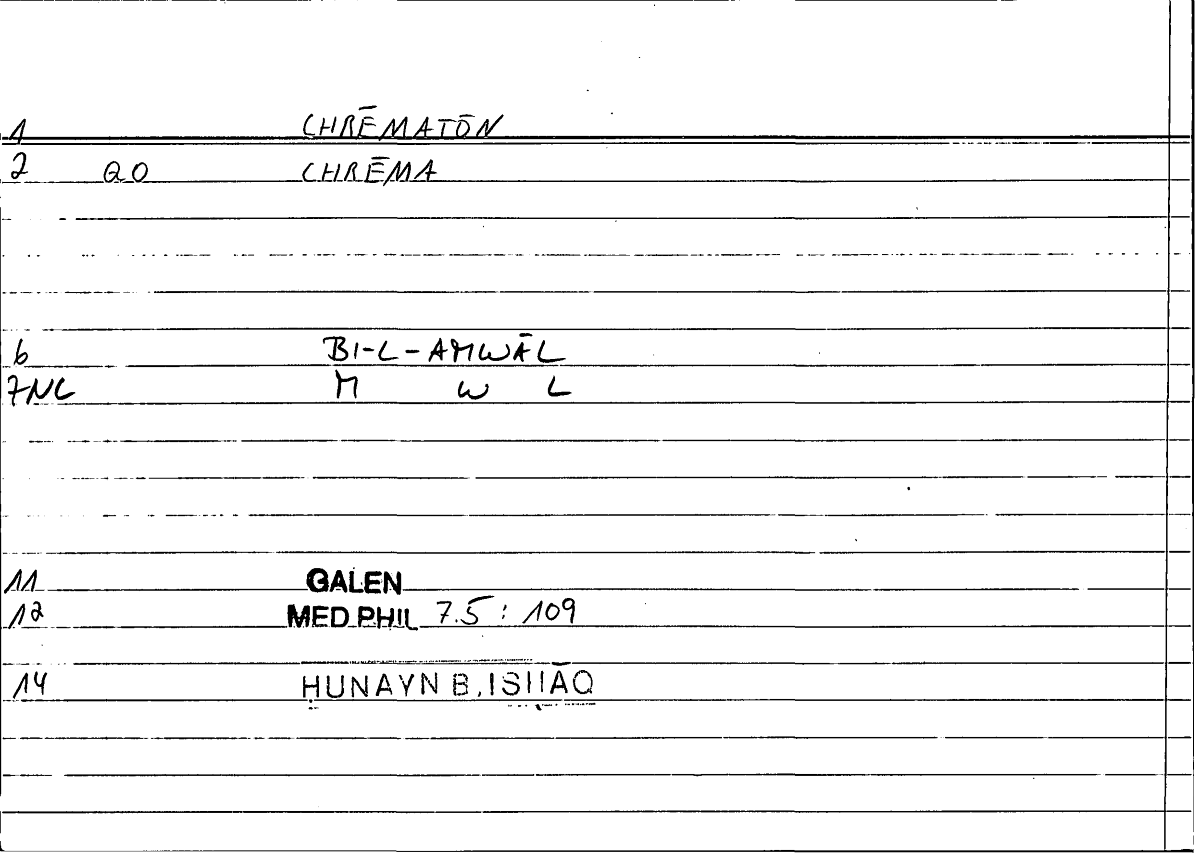 1 CHRĒMATŌN
2 QO CHRĒMA
6 BI-L-AMWĀL
7NC M W L
11 GALEN
12 MED PHIL 7.5 : 109
14 ḤUNAYN B. ISḤĀQ